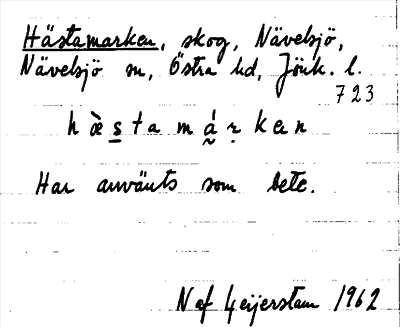 Hästamarken, skog, Nävelsjö,
Nävelsjö sn, Östra hd, Jönk. l.
723
hæ̀s̲tamá̰ṛkan
Har använts som bete.
N af Geijerstam 1962